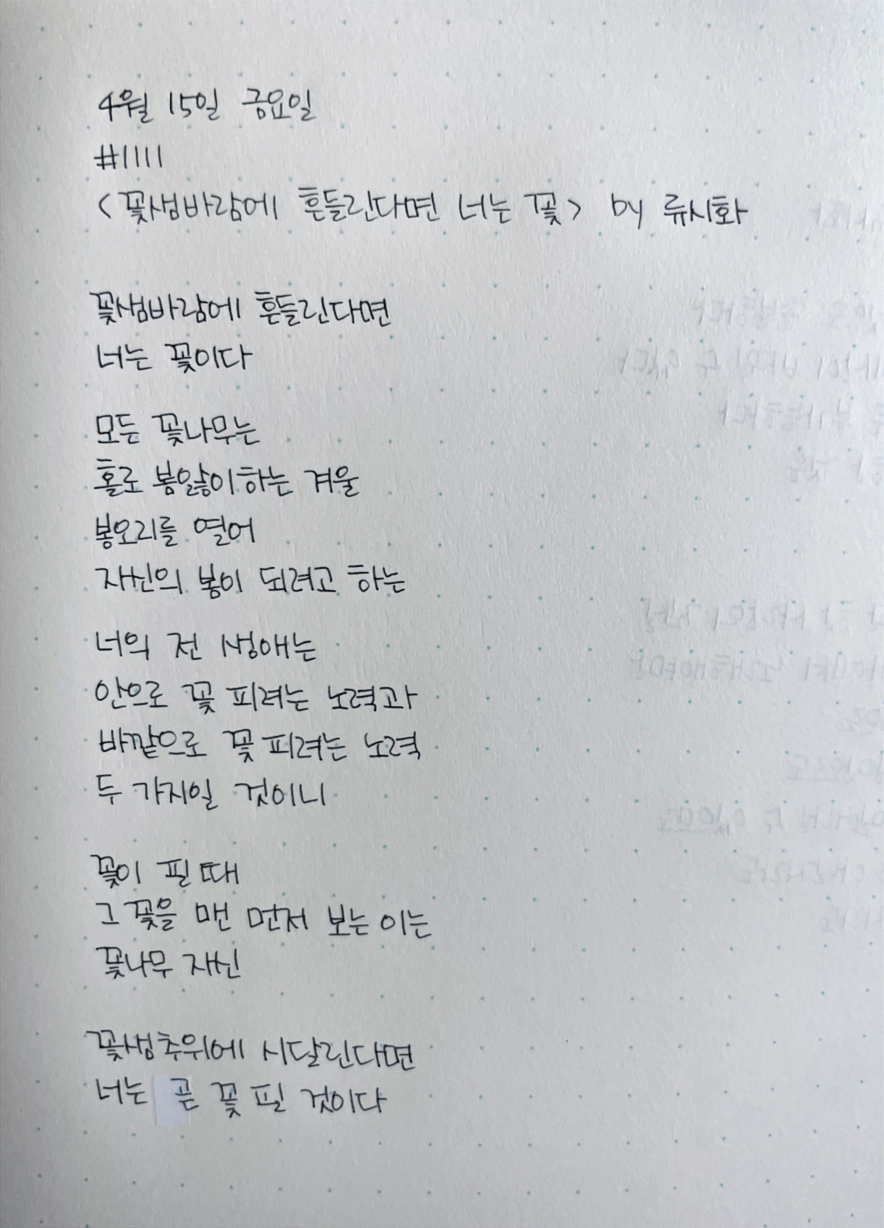 4월 15일 금요일
#1111
<꽃샘바람에 흔들린다면 너는 꽃> by 류시화
꽃샘바람에 흔들린다면
너는 꽃이다
모든 꽃나무는
홀로 봄앓이하는 겨울
봉오리를 열어
자신의 봄이 되려고 하는
너의 전 생애는
안으로 꽃 피려는 노력과
바깥으로 꽃 피려는 노력
두 가지일 것이니
꽃이 필 때
그 꽃을 맨 먼저 보는 이는
꽃나무 자신
꽃샘추위에 시달린다면
너는 곧 꽃 필 것이다